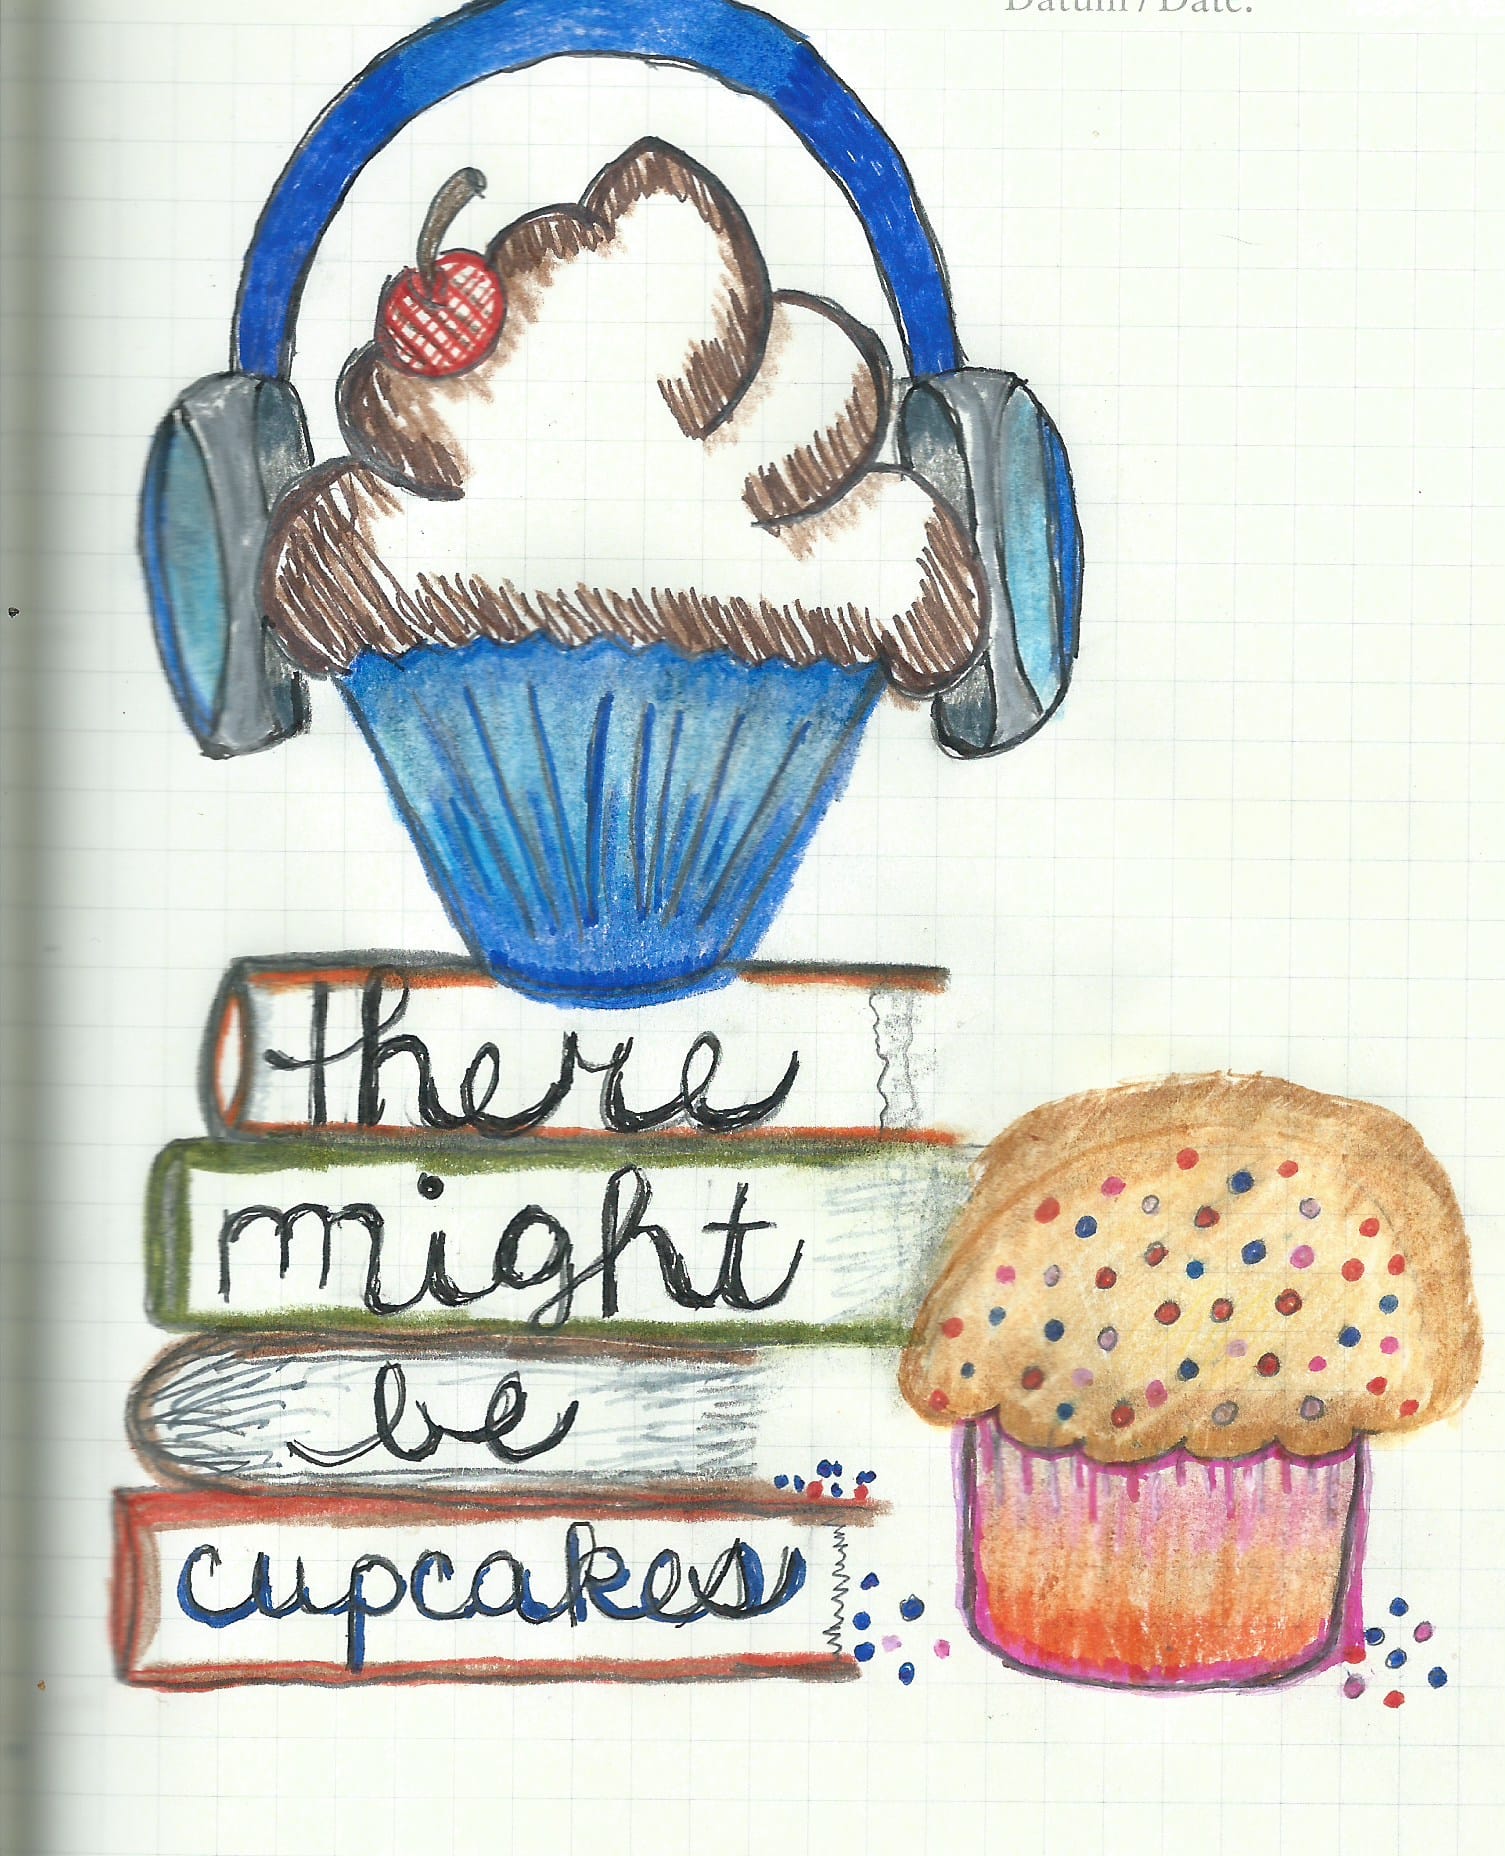 Datum / Date:
there
might
be
cupcakes